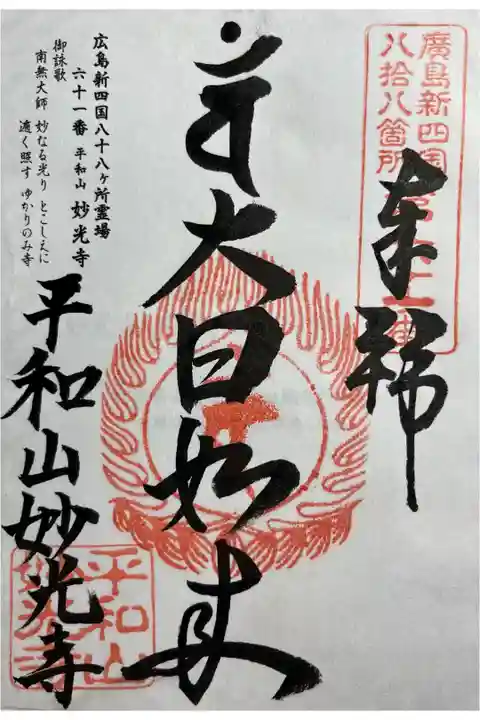 廣島新四国
八拾八箇所第六十一番
奉拝
大日如来
広島新四国八十八ヶ所霊場
六十一番 平和山 妙光寺
御詠歌
南無大師 妙なる光り とこしえに
遍く照す ゆかりのみ寺
平和山妙光寺
平和山
妙光寺